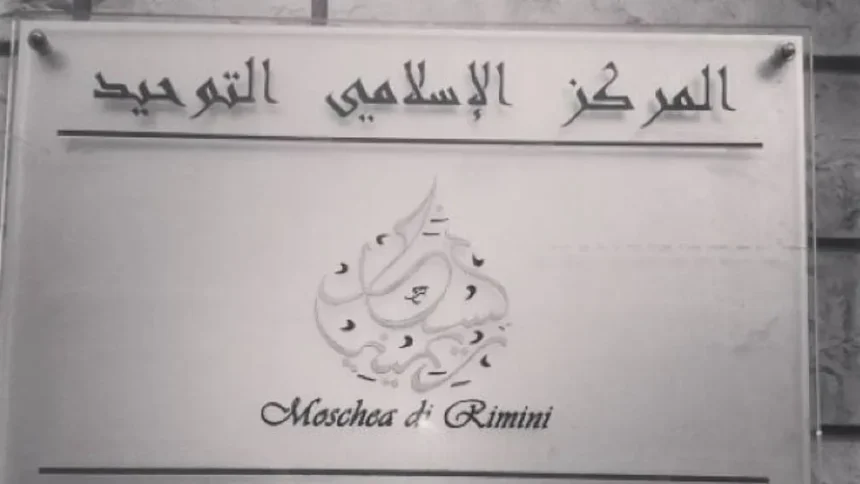 المركز الإسلامي التوحيد
Moschea di Rimini